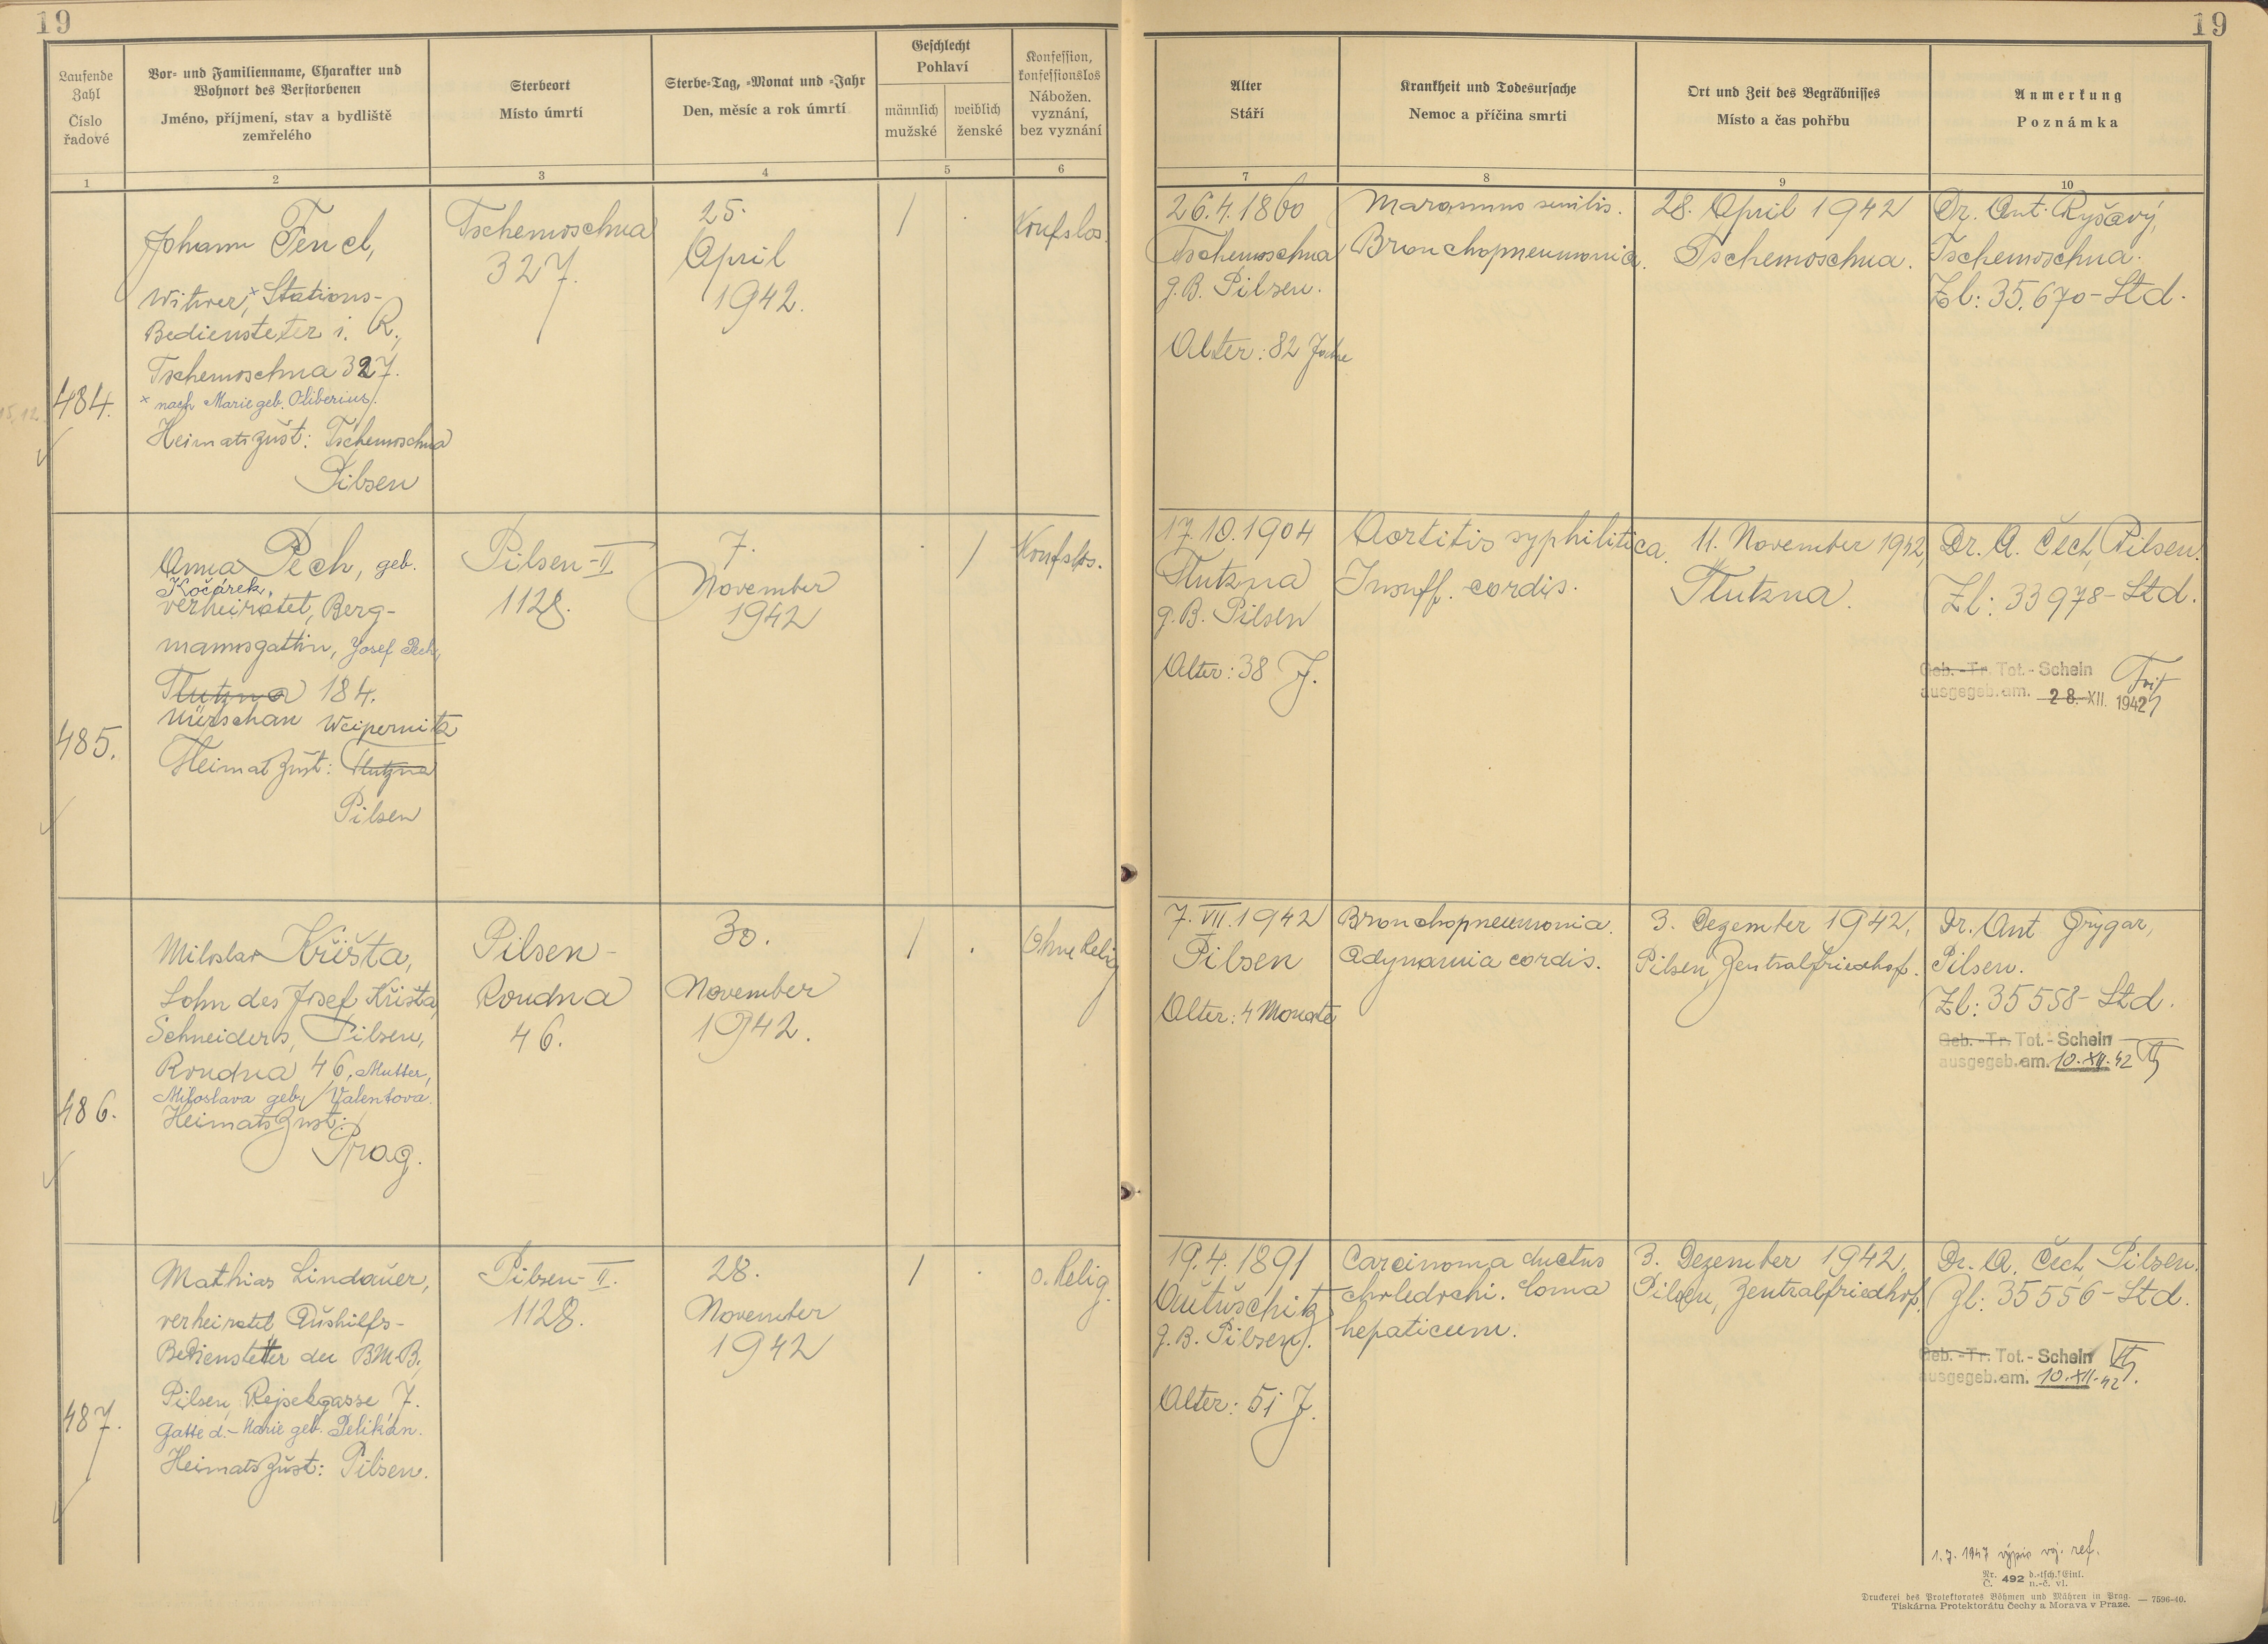 19
19
Laufende
Zahl
Číslo
řadové
Vor- und Familienname, Charakter und
Wohnort des Verstorbenen
Jméno, příjmení, stav a bydliště
zemřelého
Sterbeort
Místo úmrtí
Sterbe-Tag, -Monat und -Jahr
Den, měsíc a rok úmrtí
Geschlecht
Pohlaví
männlich
mužské
weiblich
ženské
Konfession,
konfessionslos
Nábožen.
vyznání,
bez vyznání
Alter
Stáří
Krankheit und Todesursache
Nemoc a příčina smrti
Ort und Zeit des Begräbnisses
Místo a čas pohřbu
Anmerkung
Poznámka
1
2
3
4
5
6
7
8
9
10
15.12.
484.
Johann Fencl,
Witwer,× Stations-
Bediensteter i. R.,
Tschemoschna 327.
× nach Marie geb. Oliberius.
Heimatszust: Tschemoschna
Pilsen
Tschemoschna
327.
25.
April
1942.
/
.
Konfslos.
26.4.1860
Tschemoschna
g.B. Pilsen.
Alter: 82 Jahre
Marasmus senilis.
Bronchopneumonia.
28. April 1942
Tschemoschna.
Dr. Ant. Ryšavý,
Tschemoschna.
Zl: 35.670-Std.
485.
Anna Pech, geb.
Kočárek,
verheiratet, Berg-
mannsgattin, Josef Pech,
Tlutzna 184.
Nürschan Weipernitz
Heimatzust: Tlutzna
Pilsen
Pilsen-II
1128.
7.
November
1942
.
/
Konfslos.
17.10.1904
Tlutzna
g.B. Pilsen
Alter: 38 J.
Aortitis syphilitica.
Insuff. cordis.
11. November 1942,
Tlutzna.
Dr. A. Čech, Pilsen.
Zl: 33978-Std.
Geb.-Tr. Tot.-Schein
ausgegeb. am. 28. XII. 1942
486.
Miloslav Křišta,
Sohn des Josef Křišta,
Schneiders, Pilsen,
Roudna 46, Mutter,
Miloslava geb. Valentova.
Heimatszust:
Prag.
Pilsen-
Roudna
46.
30.
November
1942.
/
.
Ohne Relig
7.VII.1942
Pilsen
Alter: 4 Monate
Bronchopneumonia.
Adynamia cordis.
3. Dezember 1942,
Pilsen, Zentralfriedhof.
Dr. Ant Grygar,
Pilsen.
Zl: 35558-Std.
Geb.-Tr. Tot.-Schein
ausgegeb. am. 10.XII.42
487.
Mathias Lindauer,
verheiratet Aushilfs-
Bediensteter der BMB,
Pilsen, Rejsekgasse 7.
Gatte d.- Marie geb. Pelikán.
Heimatszust: Pilsen.
Pilsen-II.
1128.
28.
November
1942
/
.
o. Relig.
19.4.1891
Autuschitz
g.B. Pilsen.
Alter: 51 J.
Carcinoma ductus
choledochi. Coma
hepaticum.
3. Dezember 1942,
Pilsen, Zentralfriedhof.
Dr. A. Čech, Pilsen.
Zl: 35556-Std.
Geb.-Tr. Tot.-Schein
ausgegeb. am. 10.XII.42.
1.7.1947 výpis voj. ref.
Nr. 492 d.-tsch. Einl.
Č. n.-č. vl.
Druckerei des Protektorates Böhmen und Mähren in Prag. — 7596-40.
Tiskárna Protektorátu Čechy a Morava v Praze.